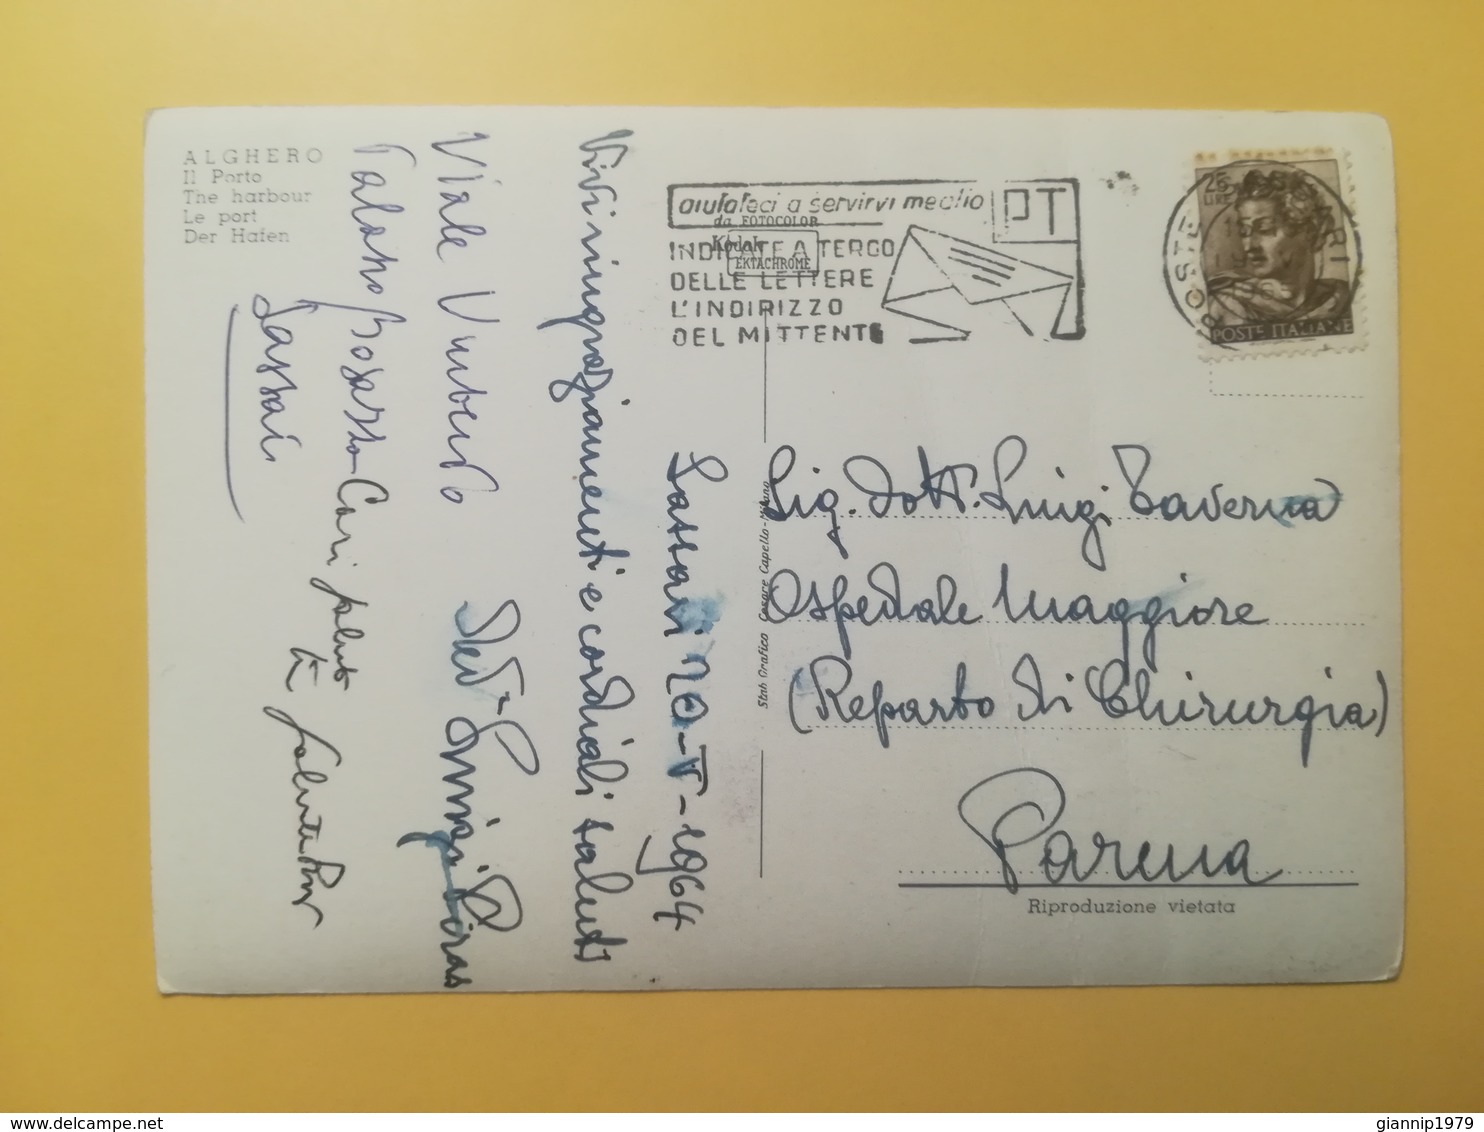 ALGHERO
Il Porto
The harbour
Le port
Der Hafen
aiutateci a servirvi meglio
PT
INDICATE A TERGO
DELLE LETTERE
L'INDIRIZZO
DEL MITTENTE
da FOTOCOLOR
Kodak
EKTACHROME
25
LIRE
POSTE ITALIANE
POSTE
Sassari 20-V-1964
Vivi ringraziamenti e cordiali saluti
Luigi Piras
Viale Umberto
Palazzo Bosazza
Sassari
Cari saluti
Stab Grafico Cesare Capello-Milano
Sig. Dott. Luigi Taverna
Ospedale Maggiore
(Reparto di Chirurgia)
Parma
Riproduzione vietata
delcampe.net
giannip1979